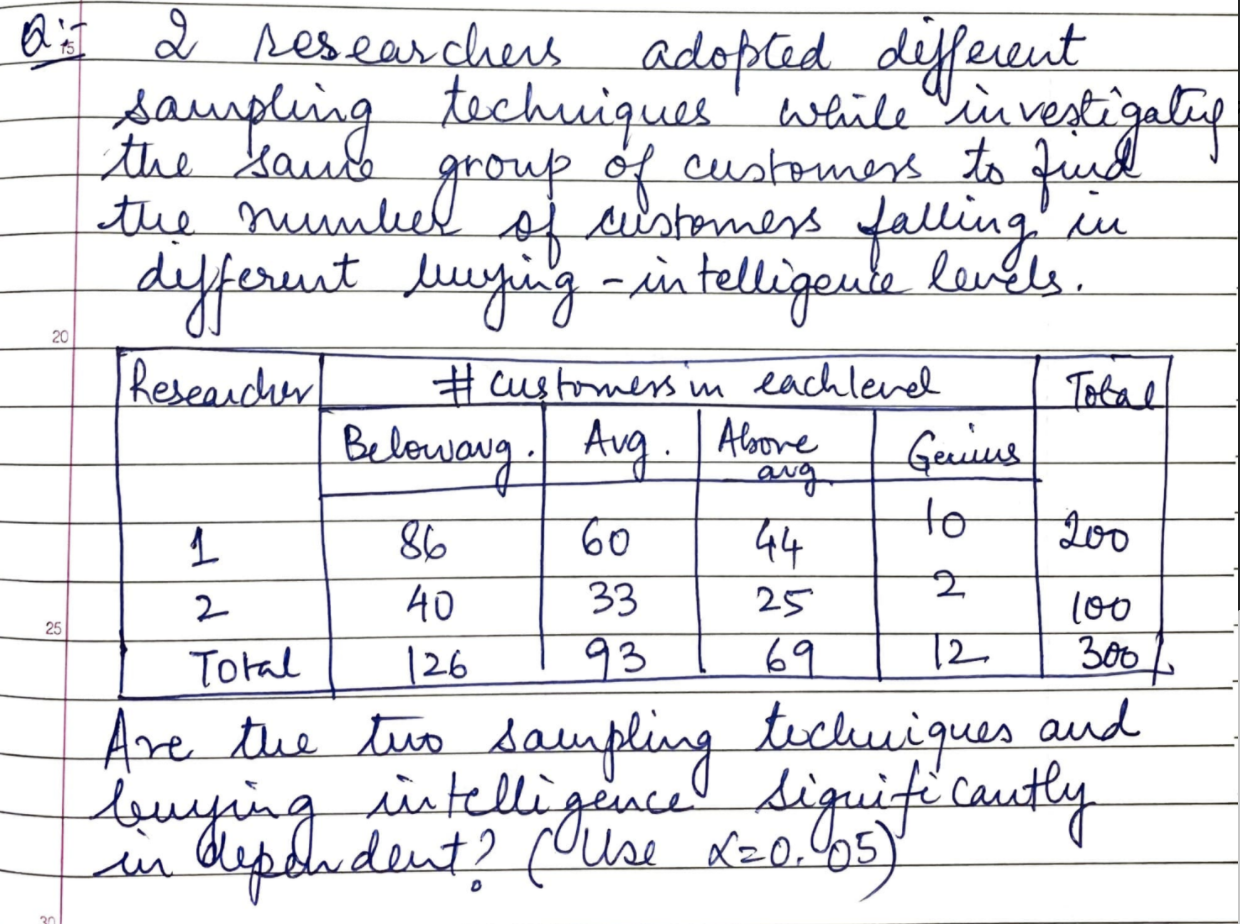 Q:- 2 researchers adopted different
15
sampling techniques while investigating
the same group of customers to find
the number of customers falling in
different buying-intelligence levels.
20
Researcher # customers in each level Total
Below avg. Avg. Above avg. Genius
1 86 60 44 10 200
2 40 33 25 2 100
25
Total 126 93 69 12 300
Are the two sampling techniques and
buying intelligence significantly
independent? (Use α=0.05)
30